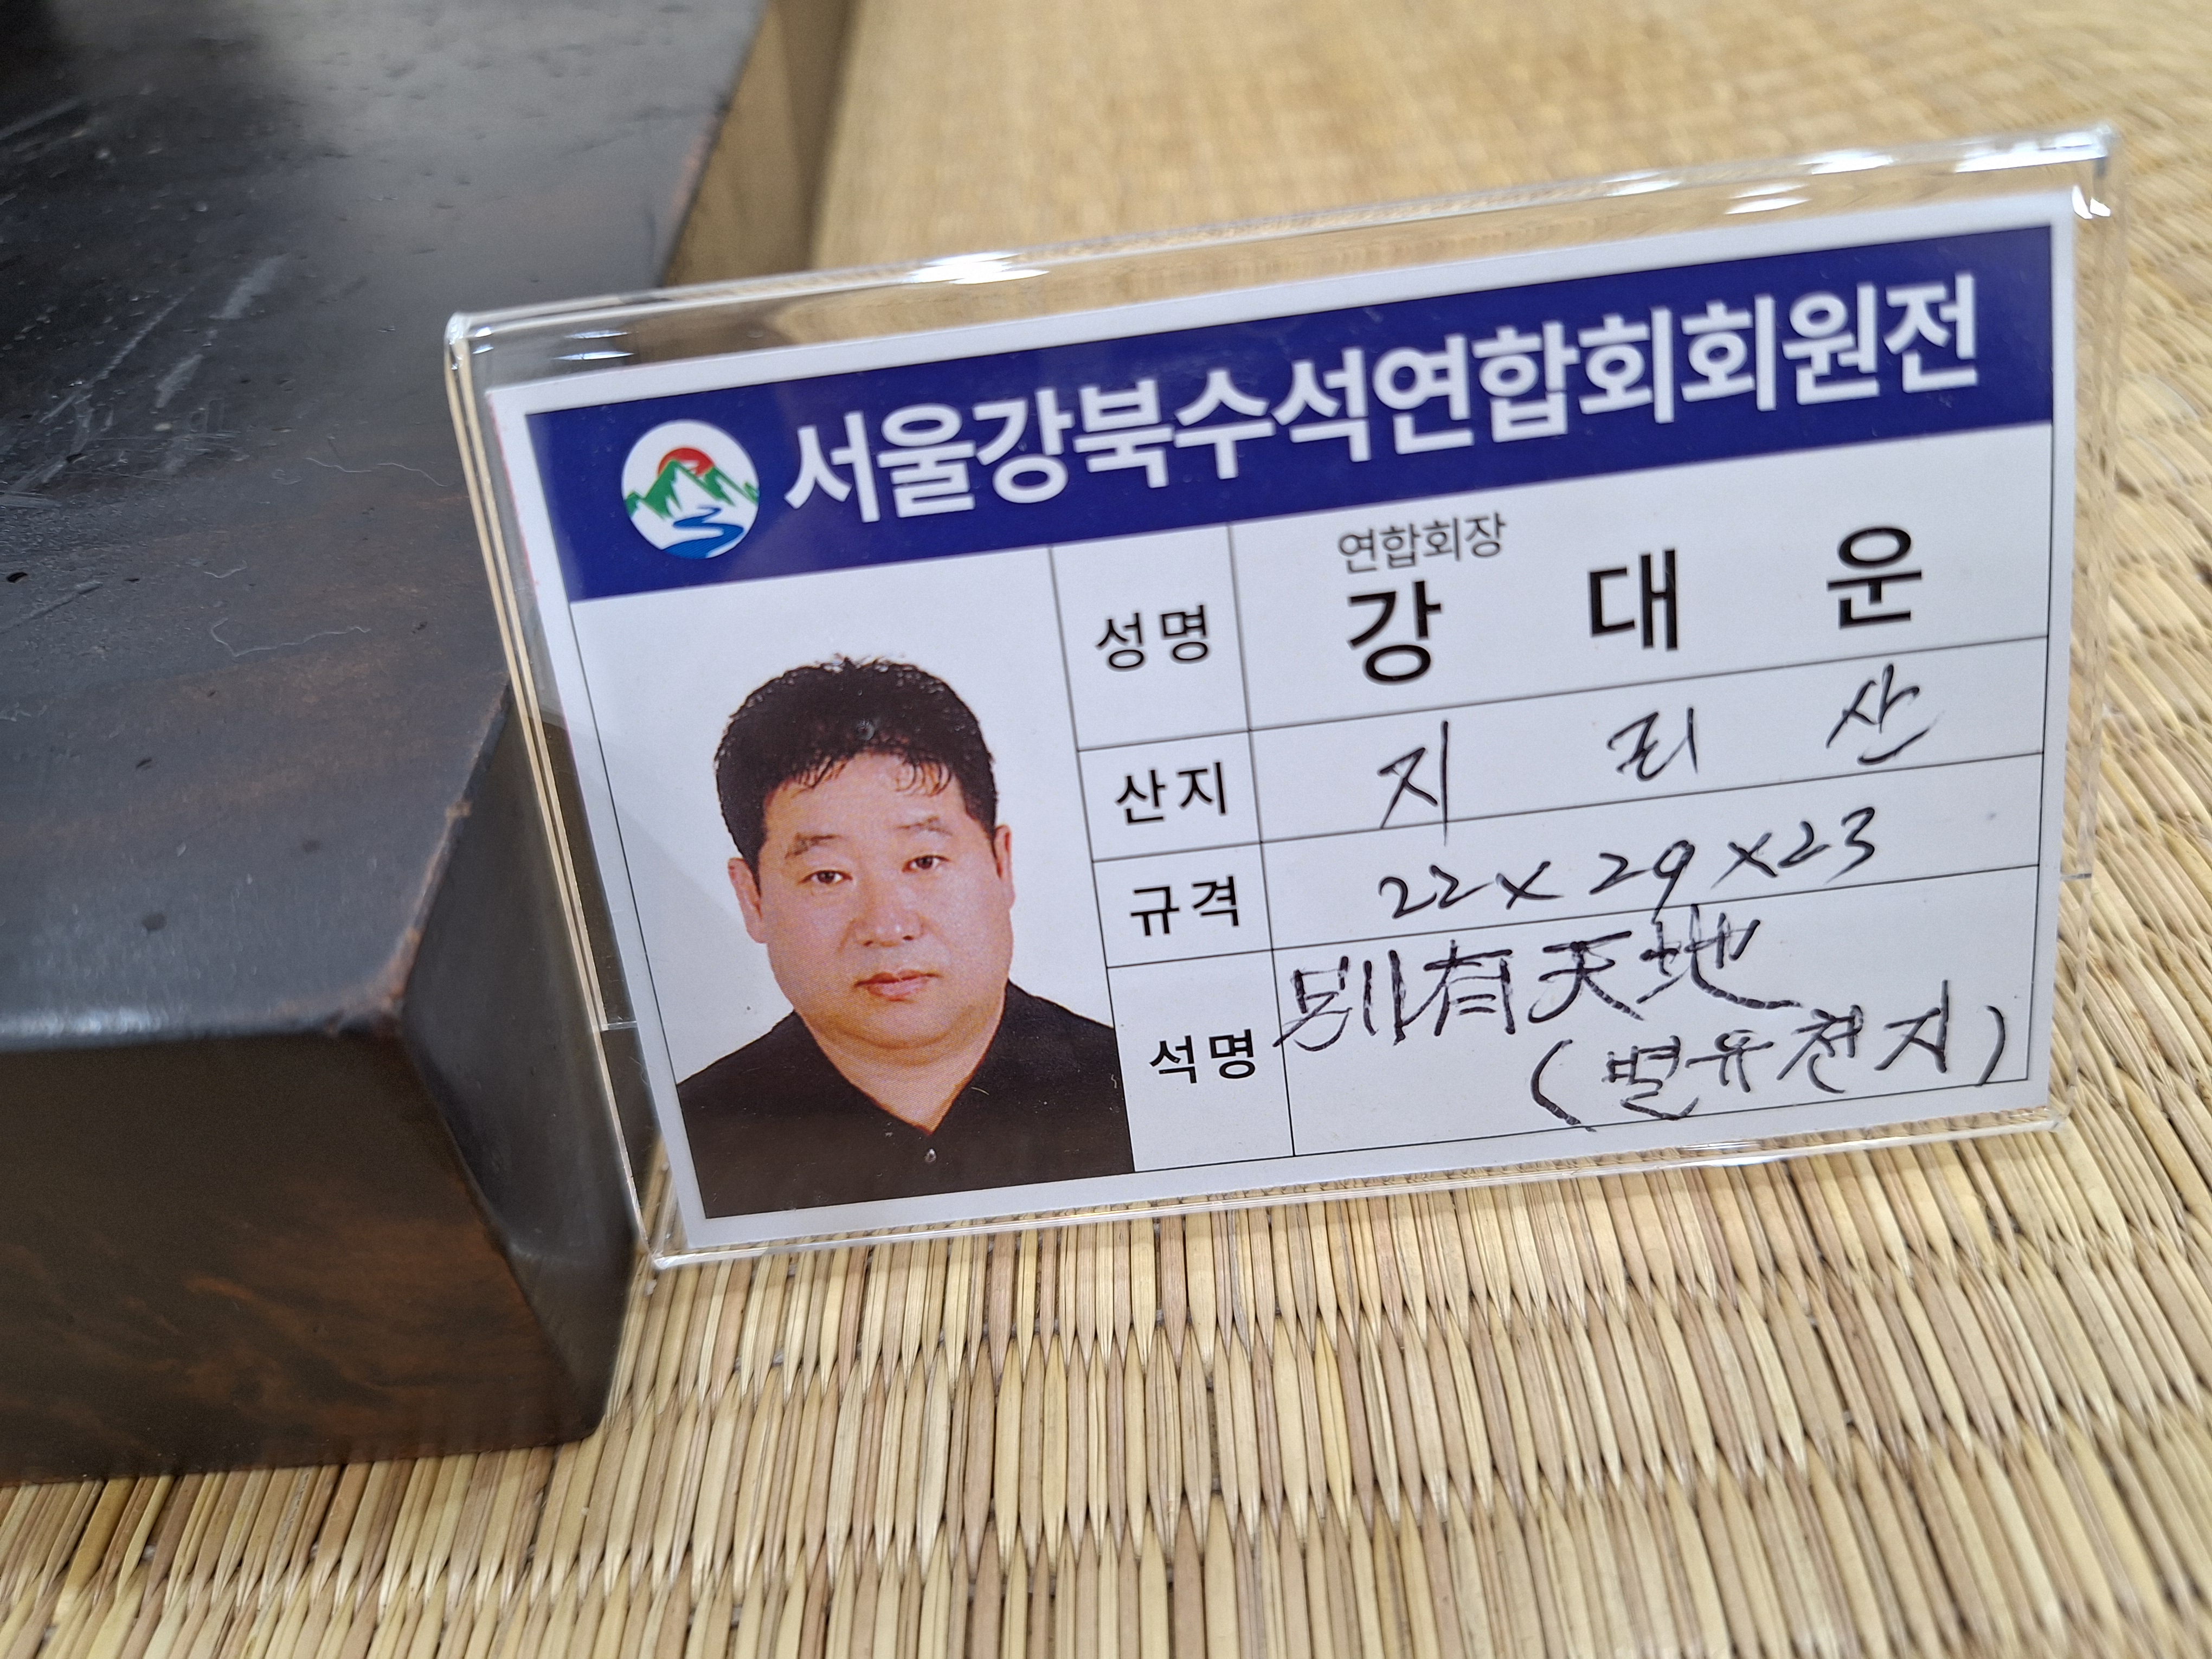 서울강북수석연합회회원전
연합회장
성명 강 대 운
산지 지 리 산
규격 22 x 29 x 23
석명 別有天地
(별유천지)